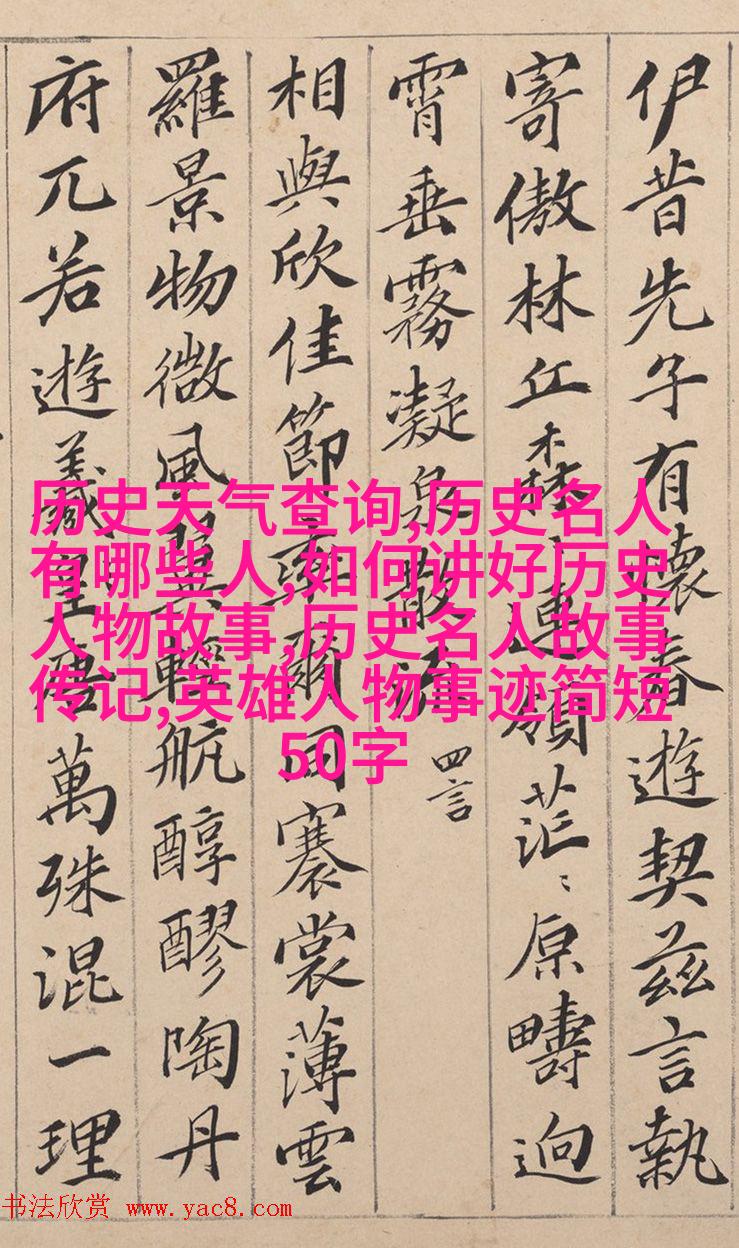 伊昔先子有懷春遊契茲言執
寄傲林丘森〻連嶺茫〻原疇逈
霄垂霧凝泉散流
四言
相與欣佳節率爾同褰裳薄雲
羅景物微風翼輕航醇醪陶丹
府兀若遊羲皇唐萬殊混一理
历史天气查询,历史名人
有哪些人,如何讲好历史
人物故事,历史名人故事
传记,英雄人物事迹简短
50字
书法欣赏 www.yac8.com